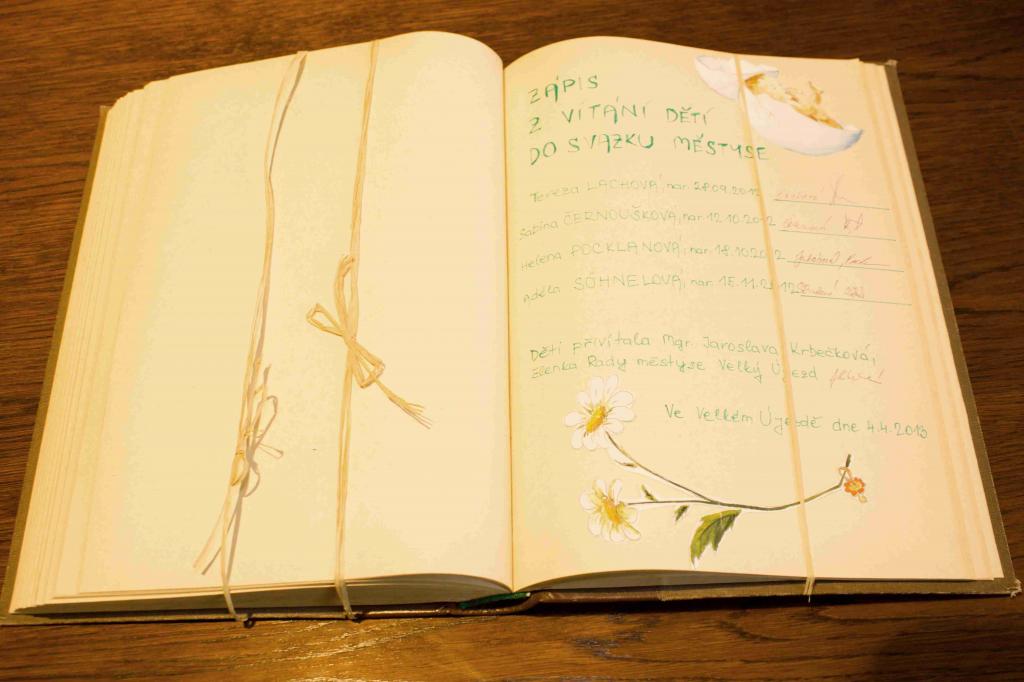 ZÁPIS
Z VÍTÁNÍ DĚTÍ
DO SVAZKU MĚSTYSE
Tereza LACHOVÁ, nar. 28.09.2012
Sabina ČERNOUŠKOVÁ, nar. 12.10.2012
Helena POCKLANOVÁ, nar. 18.10.2012
Adéla SÖHNELOVÁ, nar. 15.11.2012
Děti přivítala Mgr. Jaroslava Krbečková,
členka Rady městyse Velký Újezd
Ve Velkém Újezdě dne 4.4.2013